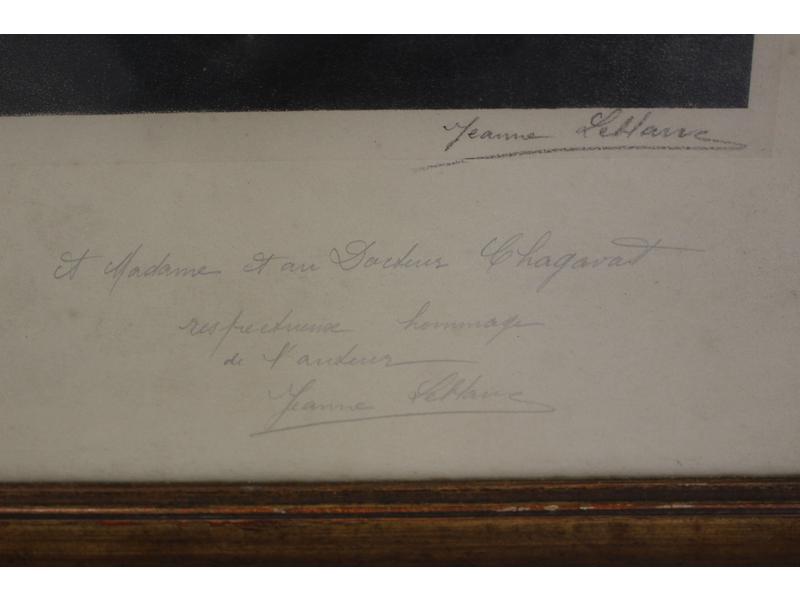 Jeanne Leblanc
et Madame et au Docteur Chagavat
respectueux hommage
de l'auteur
Jeanne Leblanc